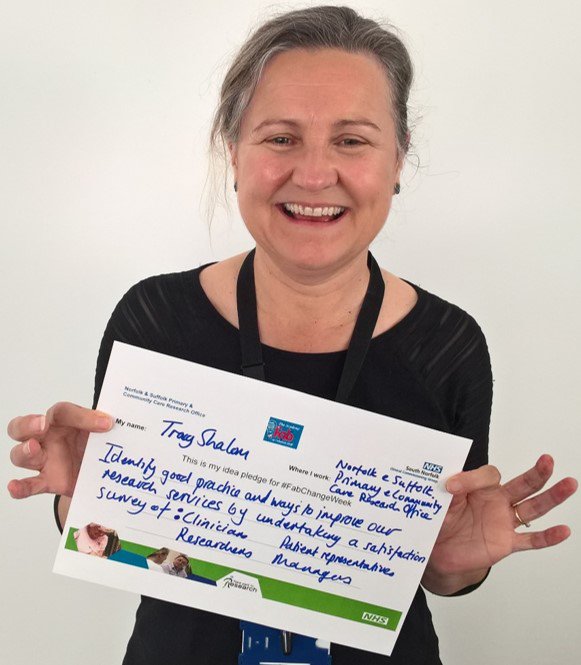 Norfolk & Suffolk Primary &
Community Care Research Office
NHS
South Norfolk
Clinical Commissioning Group
My name: Tracy Shalom
Where I work: Norfolk & Suffolk
Primary & Community
Care Research Office
This is my idea pledge for #FabChangeWeek
Identify good practice and ways to improve our
research services by undertaking a satisfaction
survey of : Clinicians Patient representatives
Researchers Managers
Research
NHS